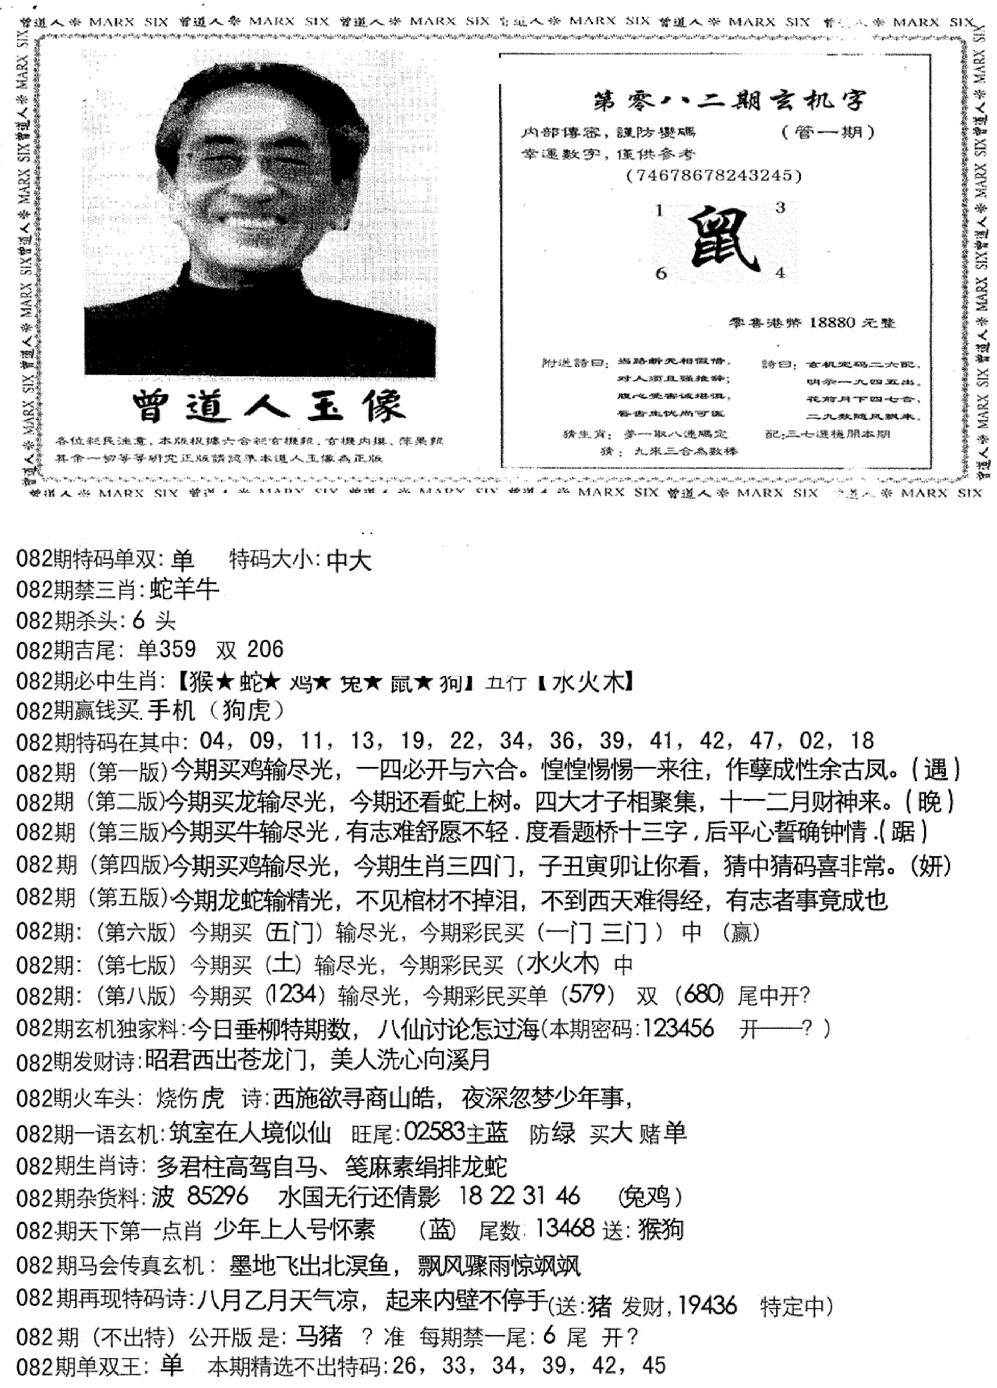 曾道人※ MARX SIX 曾道人※ MARX SIX 曾道人※ MARX SIX 曾道人※ MARX SIX 曾道人※ MARX SIX ※ MARX SIX
第零八二期玄机字
内部傳密，謹防變碼 （管一期）
幸運數字，僅供參考
(74678678243245)
1 3
鼠
6 4
零售港幣 18880 元整
附送詩曰：当路斩天相假借，
对人须且强推辞；
腹心受害诚堪惧，
唇齿生忧尚可医
詩曰：玄机定码二六配，
明示一九四五出，
花前月下四七合，
二九数随风飘来。
猜生肖：夢一取八速碼定 配:三七選種開本期
猜：九来三合為數棒
曾道人玉像
各位彩民注意，本版根據六合彩玄機報，玄機内摸，蘋果報
其余一切等等研究正版請認準本道人玉像為正版
082期特码单双: 单 特码大小: 中大
082期禁三肖: 蛇羊牛
082期杀头: 6 头
082期吉尾: 单359 双 206
082期必中生肖:【猴★蛇★鸡★兔★鼠★狗】五行【水火木】
082期赢钱买.手机（狗虎）
082期特码在其中: 04, 09, 11, 13, 19, 22, 34, 36, 39, 41, 42, 47, 02, 18
082期（第一版)今期买鸡输尽光，一四必开与六合。惶惶惕惕一来往，作孽成性余古凤。(遇)
082期（第二版)今期买龙输尽光，今期还看蛇上树。四大才子相聚集，十一二月财神来。(晚)
082期（第三版)今期买牛输尽光,有志难舒愿不轻.度看题桥十三字,后平心誓确钟情.(踞)
082期（第四版)今期买鸡输尽光，今期生肖三四门，子丑寅卯让你看，猜中猜码喜非常。(妍)
082期（第五版)今期龙蛇输精光，不见棺材不掉泪，不到西天难得经，有志者事竟成也
082期:（第六版）今期买（五门）输尽光，今期彩民买（一门 三门）中 （赢）
082期:（第七版）今期买（土）输尽光，今期彩民买（水火木）中
082期:（第八版）今期买（1234）输尽光，今期彩民买单（579） 双（680）尾中开?
082期玄机独家料:今日垂柳特期数，八仙讨论怎过海(本期密码:123456 开——? )
082期发财诗:昭君西出苍龙门，美人洗心向溪月
082期火车头: 烧伤虎 诗:西施欲寻商山皓，夜深忽梦少年事，
082期一语玄机:筑室在人境似仙 旺尾:02583主蓝 防绿 买大 赌单
082期生肖诗: 多君柱高驾自马、笺麻素绢排龙蛇
082期杂货料:波 85296 水国无行还倩影 18 22 31 46 （兔鸡）
082期天下第一点肖 少年上人号怀素 （蓝） 尾数: 13468 送: 猴狗
082期马会传真玄机: 墨地飞出北溟鱼，飘风骤雨惊飒飒
082期再现特码诗:八月乙月天气凉，起来内壁不停手(送:猪 发财,19436 特定中)
082期（不出特）公开版是: 马猪 ? 准 每期禁一尾: 6 尾 开?
082期单双王: 单 本期精选不出特码:26, 33, 34, 39, 42, 45